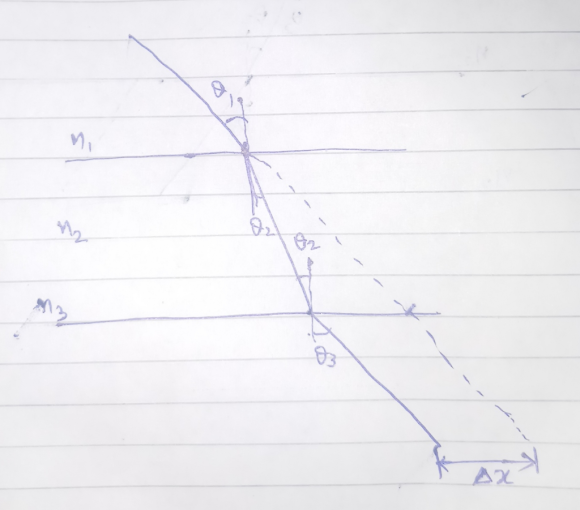 θ₁
n₁
θ₂
n₂
θ₂
n₃
θ₃
Δx